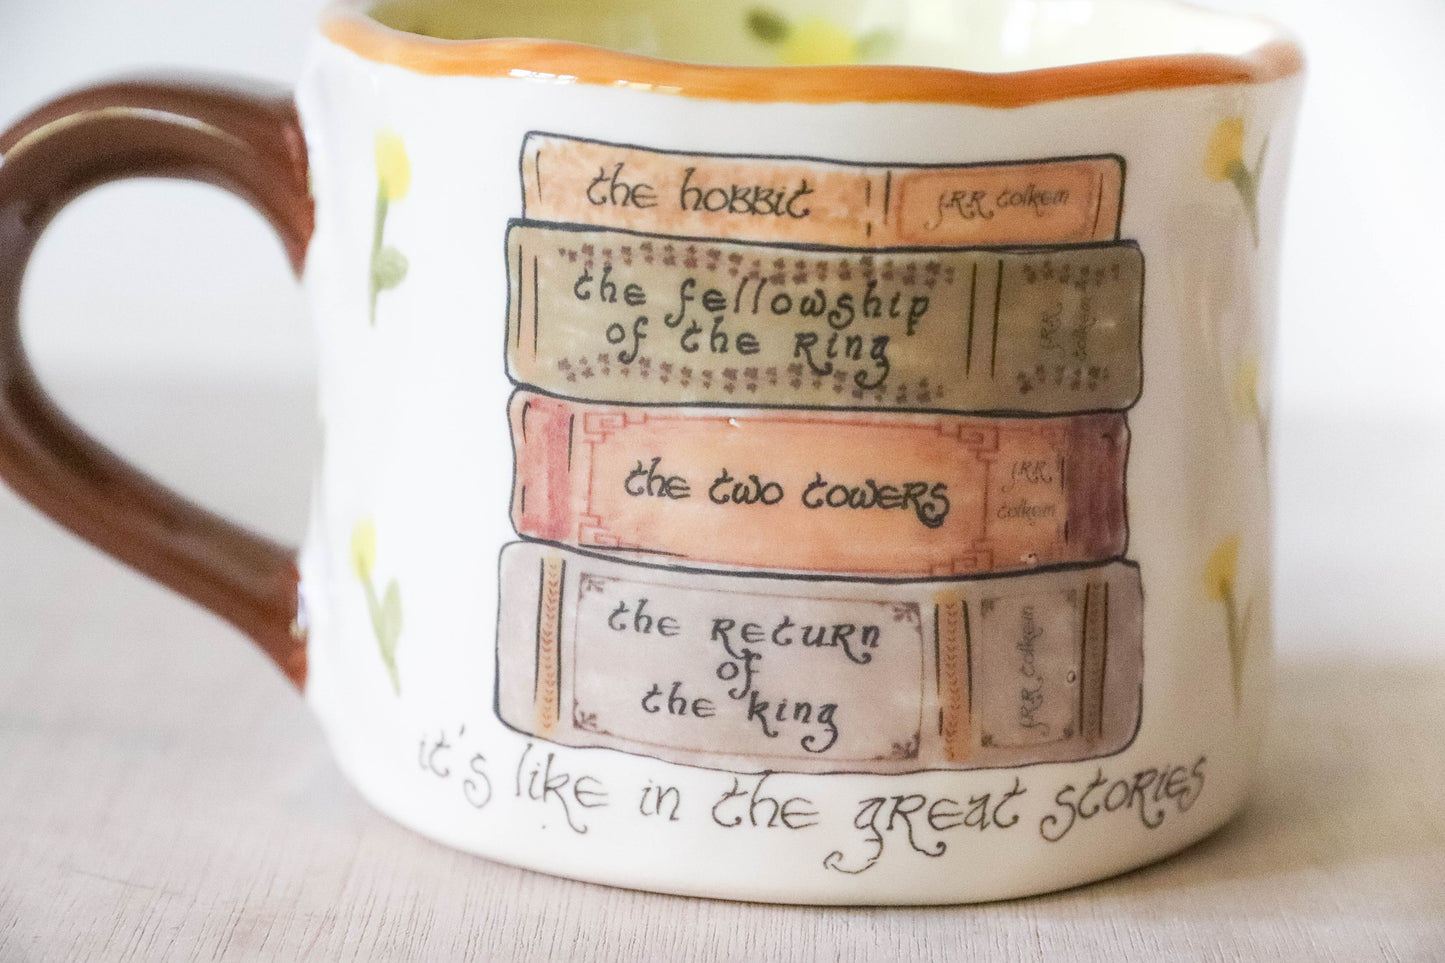 the hobbit
J.RR tolkein
the fellowship
of the Ring
J.RR
tolkein
the two towers
J.R.R.
tolkein
the Return
of
the king
J.RR tolkein
it's like in the great stories